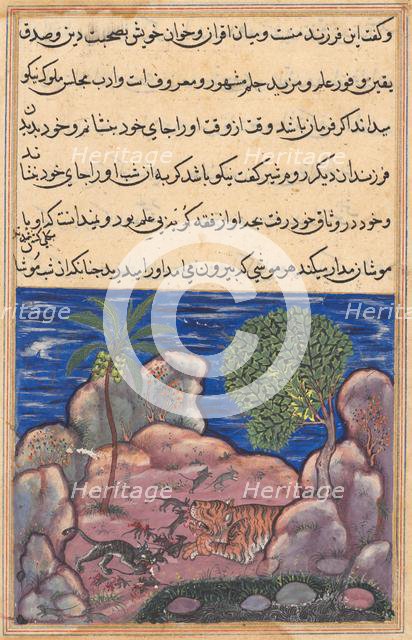 وکفت این فرزند منست و میان اقران و خوان خویش بصحبت دین و صدق
یقین و وفور علم و مزید حلم مشهور و معروف است و ادب مجلس ملوک نیکو
میداند اکر فرمان باشد وقت از وقت او را جای خود بنشانم و خود بدیدن
فرزندان دیکر روم شیر کفت نیکو باشد کربه از شب او را جای خود بنشاند
و خود در وثاق خود رفت بچه او از فقه کربزی بی علم بود و نمیدانست که او با
موشان مدار میکند هر موشی که بیرون می امد او را میدرید چنانکه ان شب موشان
Heritage
Heritage
Heritage
Heritage
Heritage
Heritage